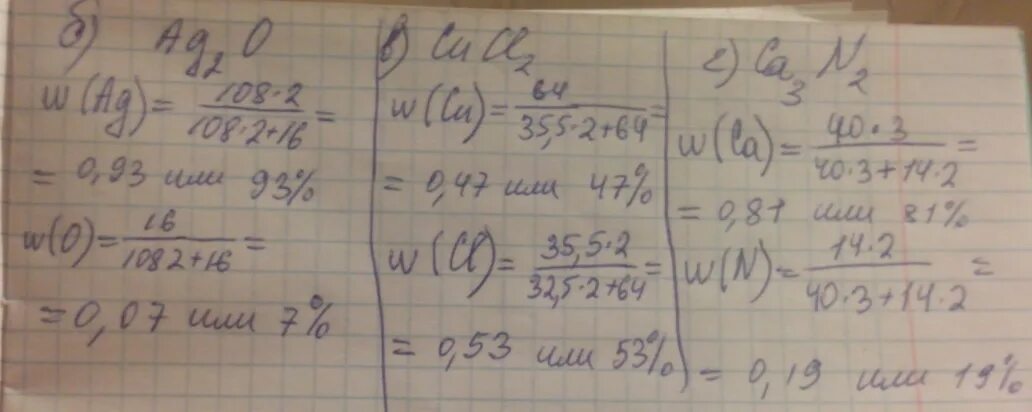 б) Ag₂O
w(Ag) = 108·2 / 108·2+16 =
= 0,93 или 93%
w(O) = 16 / 108 2+16 =
= 0,07 или 7%
в) CuCl₂
w(Cu) = 64 / 35,5·2+64 =
= 0,47 или 47%
w(Cl) = 35,5·2 / 32,5·2+64 =
= 0,53 или 53%
г) Ca₃N₂
w(Ca) = 40·3 / 40·3+14·2 =
= 0,81 или 81%
w(N) = 14·2 / 40·3+14·2 =
= 0,19 или 19%